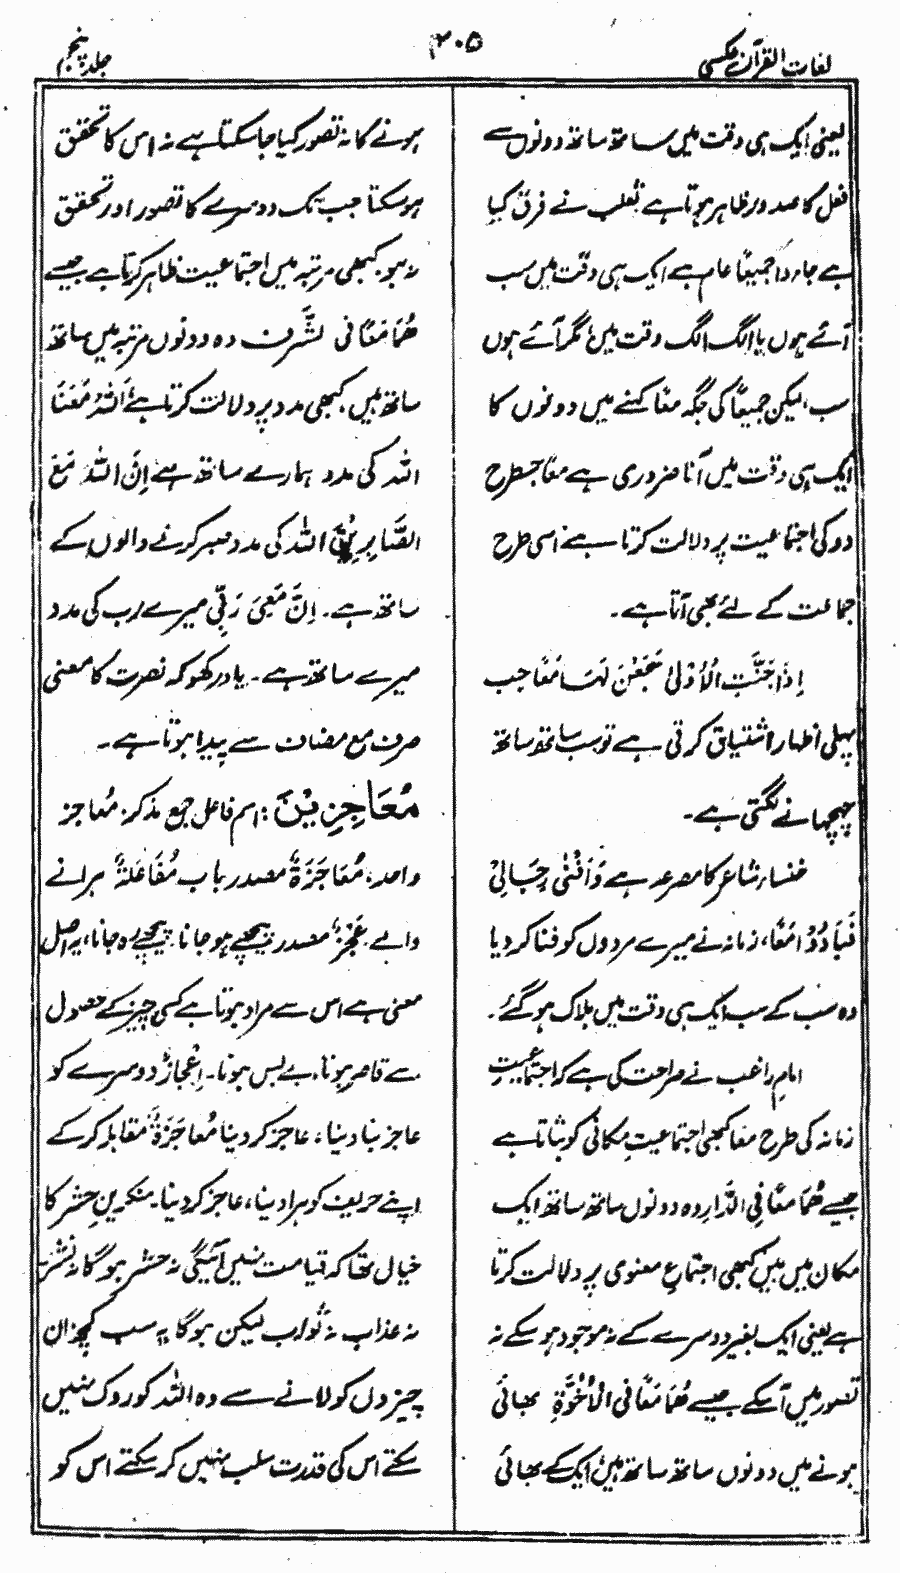 لغات القرآن عکسی
۲۰۵
جلد پنجم
یعنی ایک ہی وقت میں ساتھ ساتھ دونوں سے
فعل کا صدور ظاہر ہوتا ہے ثعلب نے فرق کیا
ہے جاءوا جمیعًا عام ہے ایک ہی وقت میں سب
آئے ہوں یا الگ الگ وقت میں مگر آئے ہوں
سب، لیکن جمیعًا کی جگہ معًا کہنے میں دونوں کا
ایک ہی وقت میں آنا ضروری ہے معًا جس طرح
دو کی اجتماعیت پر دلالت کرتا ہے اسی طرح
جماعت کے لئے بھی آتا ہے۔
اِذَا حَنَّتِ الْاُوْلٰی سَجَعْنَ لَہَا مَعًا جب
پہلی اظہار اشتیاق کرتی ہے تو سب ساتھ ساتھ
چہچہانے لگتی ہے۔
خنساء شاعر کا مصرعہ ہے وَاَفْنٰی رِجَالِیْ
فَبَادُوْا مَعًا، زمانہ نے میرے مردوں کو فنا کر دیا
وہ سب کے سب ایک ہی وقت میں ہلاک ہو گئے۔
امام راغب نے صراحت کی ہے کہ اجتماعیتِ
زمانہ کی طرح معا کبھی اجتماعیتِ مکانی کو بتاتا ہے
جیسے ھُمَا مَعًا فِی الدَّارِ وہ دونوں ساتھ ساتھ ایک
مکان میں ہیں کبھی اجتماعِ معنوی پر دلالت کرتا
ہے یعنی ایک بغیر دوسرے کے نہ موجود ہو سکے نہ
تصور میں آ سکے جیسے ھُمَا مَعًا فی الْاُخُوَّةِ بھائی
ہونے میں دونوں ساتھ ساتھ ہیں ایک کے بھائی
ہونے کا نہ تصور کیا جا سکتا ہے نہ اس کا تحقق
ہو سکتا جب تک دوسرے کا تصور اور تحقق
نہ ہو۔ کبھی مرتبہ میں اجتماعیت ظاہر کرتا ہے جیسے
ھُمَا مَعًا فی الشَّرف وہ دونوں مرتبہ میں ساتھ
ساتھ ہیں۔ کبھی مدد پر دلالت کرتا ہے اَللّٰہُ مَعَنَا
اللہ کی مدد ہمارے ساتھ ہے اِنَّ اللّٰہَ مَعَ
الصَّابِرِیْنَ اللہ کی مدد صبر کرنے والوں کے
ساتھ ہے۔ اِنَّ مَعِیَ رَبِّیْ میرے رب کی مدد
میرے ساتھ ہے۔ یاد رکھو کہ نصرت کا معنی
صرف مع مضاف سے پیدا ہوتا ہے۔
مُعَاجِزِیْنَ: اسم فاعل جمع مذکر، مُعاجز
واحد، مُعَاجَزَةٌ مصدر باب مُفَاعَلَۃٌ ہرانے
والے۔ عَجْزٌ مصدر پیچھے ہو جانا۔ پیچھے رہ جانا، یہ اصل
معنی ہے اس سے مراد ہوتا ہے کسی چیز کے حصول
سے قاصر ہونا، بے بس ہونا۔ اِعْجَازٌ دوسرے کو
عاجز بنا دینا، عاجز کر دینا مُعاجَزَةٌ مقابلہ کر کے
اپنے حریف کو ہرا دینا، عاجز کر دینا۔ منکرینِ حشر کا
خیال تھا کہ قیامت نہیں آئیگی نہ حشر ہو گا نہ نشر
نہ عذاب نہ ثواب لیکن ہو گا یہ سب کچھ ان
چیزوں کو لانے سے وہ اللہ کو روک نہیں
سکتے اس کی قدرت سلب نہیں کر سکتے اس کو